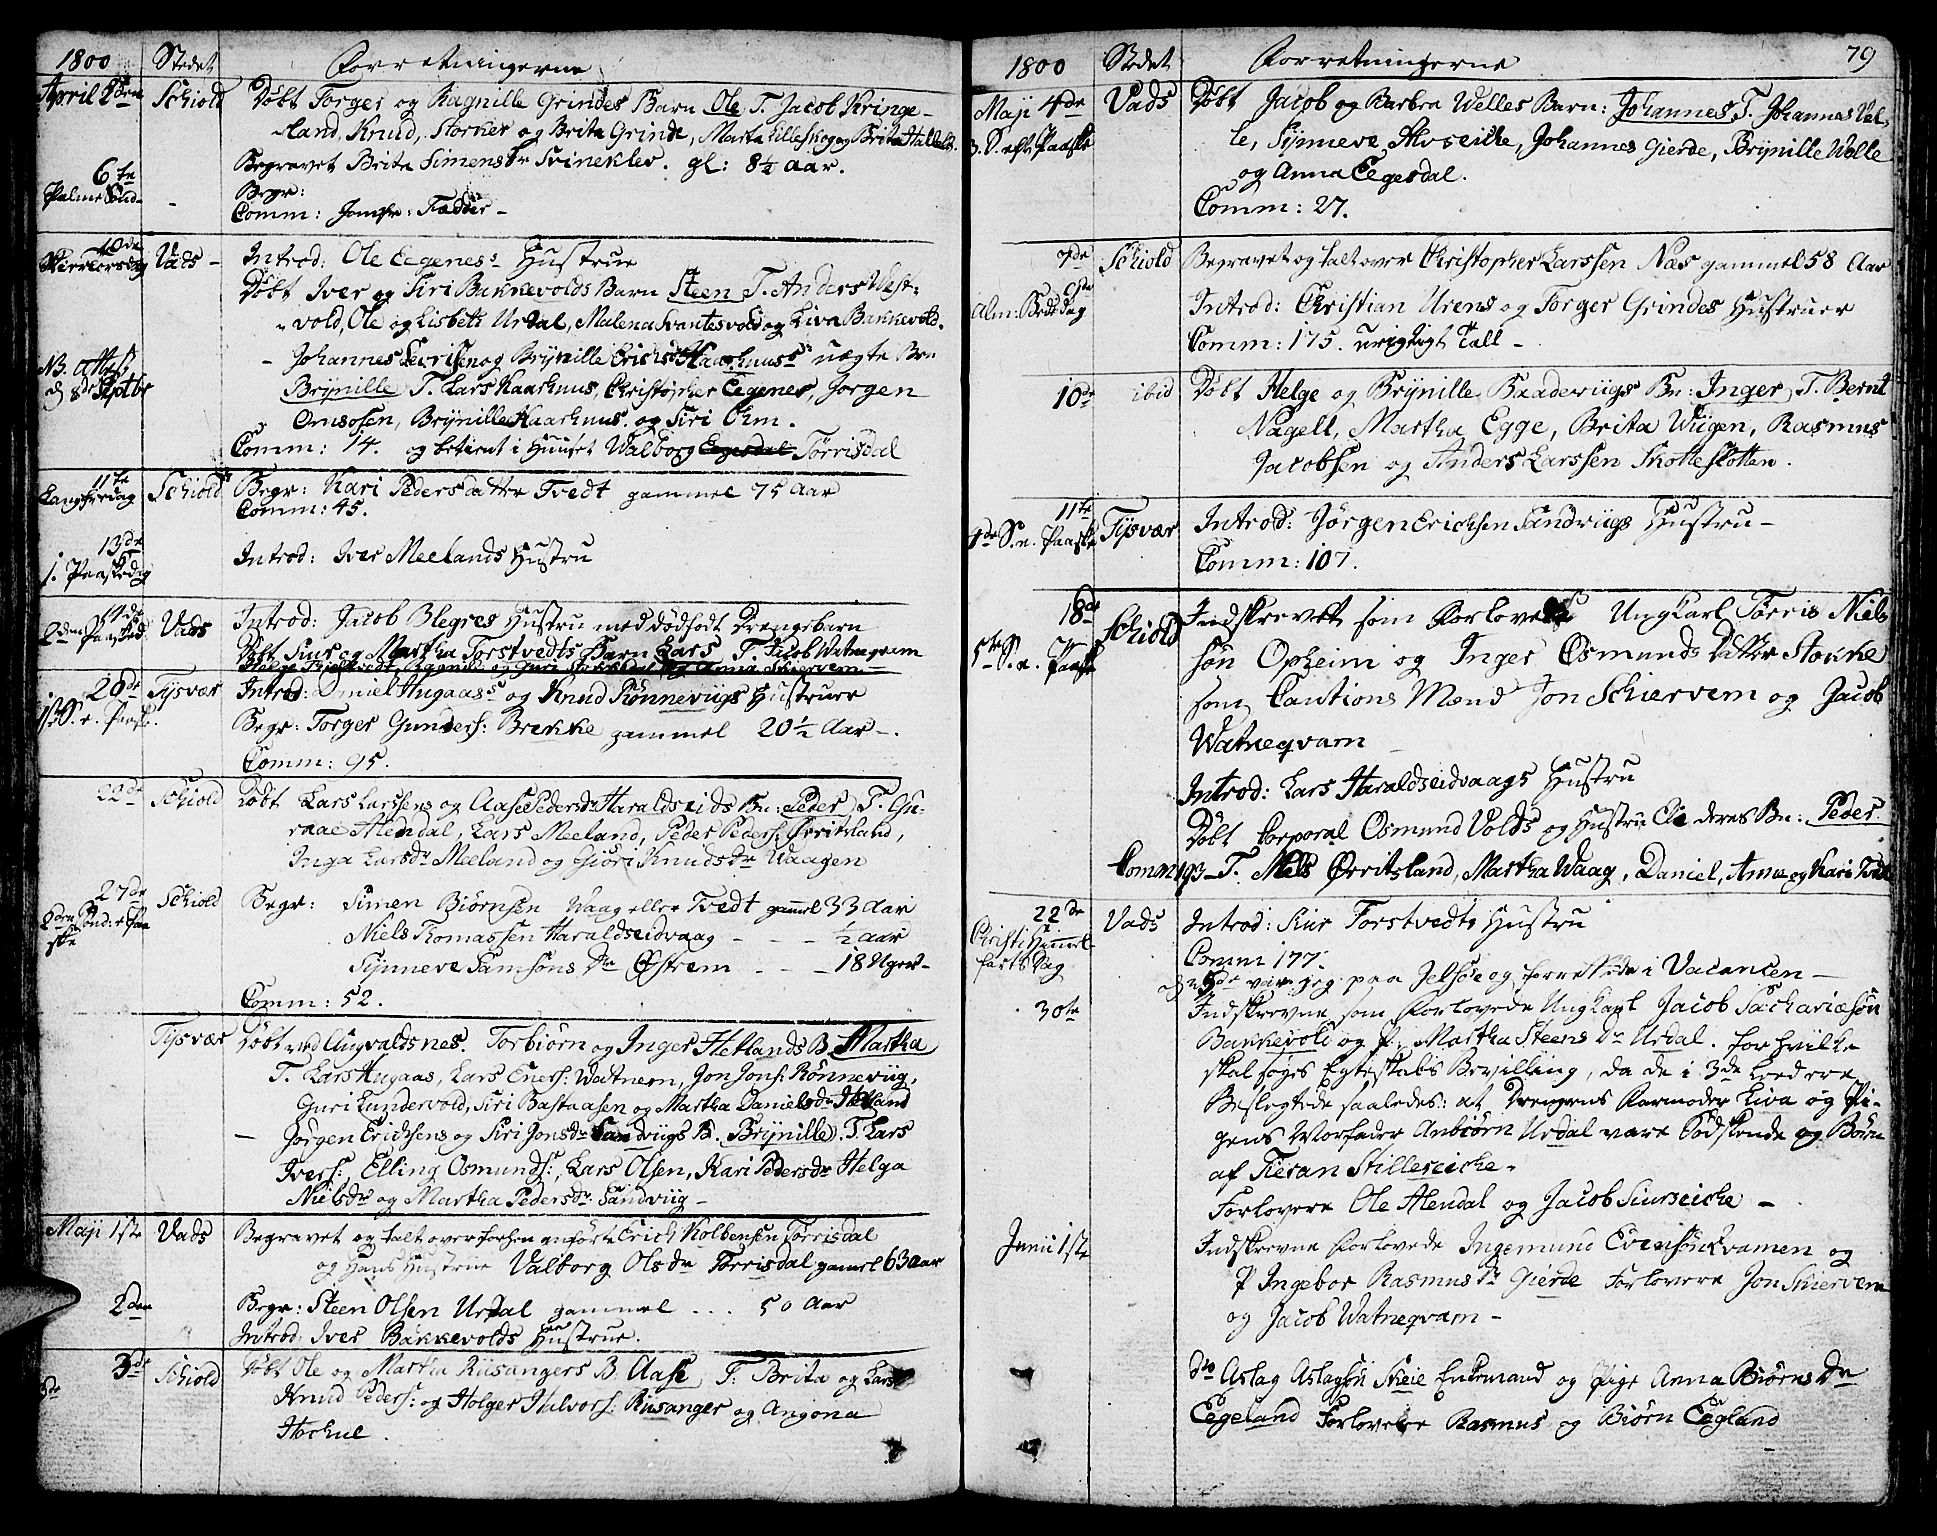 1800 Stedet Forretningerne
April 2den Schiold Døbt Torger og Ragnille Grindes Barn Ole T. Jacob Kringe-
land, Knud, Storker og Brita Grinde, Marta Lilleskog og Brita
Begravet Brita Simens Dr Svineklev. gl: 8½ Aar.
6te
Palme Sønd - Begr:
Comm: Jomfr: Fædder -
10de
Skiertorsdag Vads - Introd: Ole Eegenes's Hustrue
Døbt Iver og Siri Bakkevolds Barn Steen T. Anders West-
vold, Ole og Lisbeth Urdal, Malena Svantesvold og Liva Bakkevold.
- Johannes Iversen og Brÿnille Erichsdr Kaarhuus's uægte Bn
NB. Attest
d 8de Septbr
Brÿnille T. Lars Kaarhuus, Christopher Eegenes, Jørgen
Omsosen, Brÿnille Kaarhuus og Siri Ohm.
Comm: 14. og betient i Huuset Walborg Egesdal Tørrisdal
11te
Langfredag Schiold Begr: Kari Pedersdatter Tvedt gammel 75 Aar
Comm: 45.
13de
1. Paaskedag Introd: Iver Meelands Hustru
14de
2den Paasked. Vads Introd: Jacob Blegres Hustru med dødfødt Drengebarn
Døbt Siur og Martha Forstvedts Barn Lars T. Jacob Watneqvam
20de Tysvær Introd: Daniel Hugaas's og Knud Rønneviigs Hustruer
1ste S. e. Paaske. Begr: Torger Gunders: Brekke gammel 20½ Aar -.
Comm: 95.
22de Schiold Døbt Lars Larssens og Aase Pedersdr Haraldseids Bn: Peder T. Gu-
raae Alendal, Lars Meeland, Peder Peders: Ørritsland,
Inga Larsdr Meeland og Siøri Knudsdr Waagen
27de Schiold Begr: Simen Biørnsen Vaag eller Tvedt gamel 33 Aar
2den Sønd: e Paa
ske
Niels Thomassen Haraldseidvaag - - - ½ Aar
Sÿnneve Samsons Dr Østrem - - - 18 Uger -
Comm: 52.
Tysvær Døbt ved Augvaldsnes. Torbiørn og Inger Hetlands B. Martha
T. Lars Hugaas, Lars Eners: Watnem, Jon Jons: Rønneviig,
Guri Lundervold, Siri Bastaasen og Martha Danielsdr Hetland
- Jørgen Erichsens og Siri Jonsdr Sandviigs B. Brÿnille. T. Lars
Ivers: Elling Osmunds:, Lars Olsen, Kari Pedersdr Helga
Nielsdr og Martha Pedersdr Sandviig -
Maji 1ste Vads Begravet og talt over forhen anførte Erich Kolbensen Tørrisdal
og Hans Hustrue Valborg Olsdr Tørrisdal gamel 63 Aar
2den Begr: Steen Olsen Urdal gammel . . . 50 Aar
Introd: Iver Bakkevolds Hustrue.
3de Schiold Døbt Ole og Martha Riisangers B. Aase T: Brita og Lars
Knud Peders: og Holger Halvors: Riisanger og Angona
1800 Stedet Forretningerne 79
Maji 4de Vads Døbt Jacob og Barbra Welles Barn: Johannes T. Johannes Vel-
3. S. eft. Paaske le, Sÿnneve Alvseike, Johannes Gierde, Brÿnille Welle
og Anna Eegesdal.
Comm: 27.
7de Schiold Begravet og talt over Christopher Larssen Næs gammel 58 Aar
Alm: Bededag Introd: Christian Urens og Torger Grindes Hustruer
Comm: 175. urigtigt Tall -
10de ibid Døbt Helge og Brÿnille Baaderiigs Bn: Inger T. Bernt
Nagell, Martha Egge, Brita Wiigen, Rasmus
Jacobsen og Anders Larssen Skotteslotten.
11te
4de S. e. Paaske Tysvær Introd: Jørgen Erichsen Sandviigs Hustru -
Comm: 107.
18de Schiold Indskrevet som Forlovede Ungkarl Tørris Niels
5te S. e. Paaske søn Opheim og Inger Osmunds Datter Stokke
som Cautions Mænd Jon Schiervem og Jacob
Watneqvam
Introd: Lars Haraldseidvaags Hustru
Døbt Corporal Osmund Volds og Hustru Ole deres Bn: Peder.
Comm 193 - T. Niels Ørritsland, Martha Waag, Daniel, Anna og Kari Vold
22de Vads Introd: Siur Forstvedts Hustru
Christi Himmel-
farts Dag Comm 177.
d 25de var jeg paa Jelsøe og forrettede i Vacancen -
30te Indskrevne som Forlovede Ungkarl Jacob Sachariæsøn
Bakkevold og P. Martha Steens Dr Urdal. for hvilke
skal søges Egteskabs Bevilling, da de i 3de Leed ere
Beslegtede saaledes: at Drengens Farmoder Liva og Pi-
gens Morfader Anbiørn Urdal vare Sødskende og Børn
af Tieran Stilleseiche.
Forlovere Ole Alendal og Jacob Siurseiche -
Junii 1ste Indskrevne Forlovede Ingemund Evensøn Kvamen og
P Ingebor Rasmus Dr Gierde Forlovere Jon Skiervem
og Jacob Watneqvam -
dto Aslag Aslagsøn Skeie Enkemand og Pige Anna Biørns Dr
Eegeland Forlovere Rasmus og Biørn Eegland